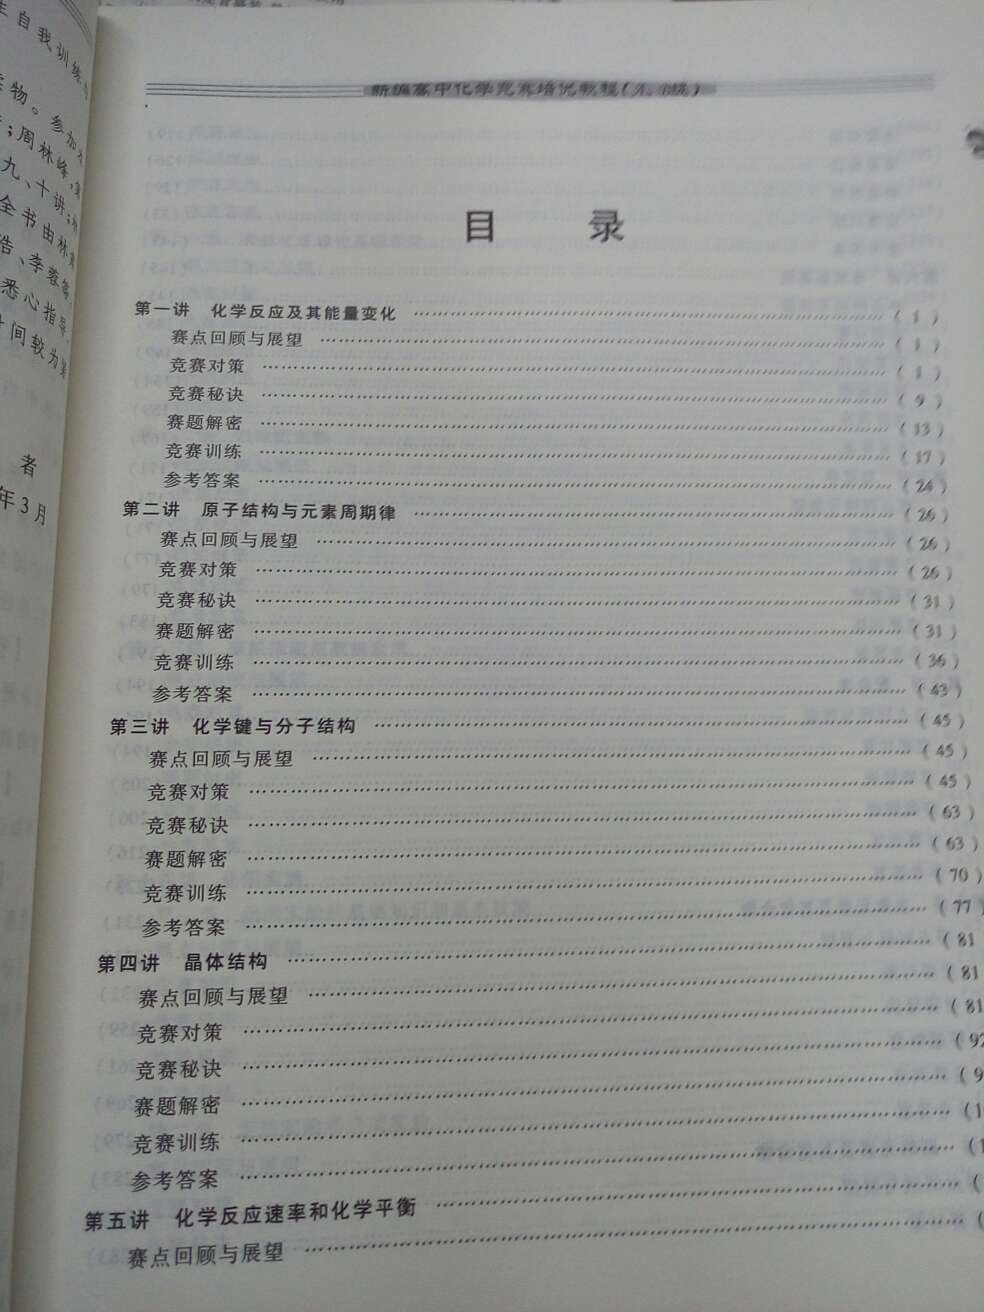 生自我训练
物。参加
;周林峰,
九、十讲;
全书由林
浩、李蓉
悉心指导
间较为
者
年3月
新编高中化学竞赛培优教程(
目 录
第一讲 化学反应及其能量变化 ………………………… ( 1 )
赛点回顾与展望 ………………………… ( 1 )
竞赛对策 ………………………… ( 1 )
竞赛秘诀 ………………………… ( 9 )
赛题解密 ………………………… ( 13 )
竞赛训练 ………………………… ( 17 )
参考答案 ………………………… ( 24 )
第二讲 原子结构与元素周期律 ………………………… ( 26 )
赛点回顾与展望 ………………………… ( 26 )
竞赛对策 ………………………… ( 26 )
竞赛秘诀 ………………………… ( 31 )
赛题解密 ………………………… ( 31 )
竞赛训练 ………………………… ( 36 )
参考答案 ………………………… ( 43 )
第三讲 化学键与分子结构 ………………………… ( 45 )
赛点回顾与展望 ………………………… ( 45 )
竞赛对策 ………………………… ( 45 )
竞赛秘诀 ………………………… ( 63 )
赛题解密 ………………………… ( 63 )
竞赛训练 ………………………… ( 70 )
参考答案 ………………………… ( 77 )
第四讲 晶体结构 ………………………… ( 81
赛点回顾与展望 ………………………… ( 81
竞赛对策 ………………………… ( 81
竞赛秘诀 ………………………… ( 92
赛题解密 ………………………… ( 9
竞赛训练 ………………………… ( 1
参考答案 ………………………… ( 1
第五讲 化学反应速率和化学平衡 ………………………… (
赛点回顾与展望 ………………………… (